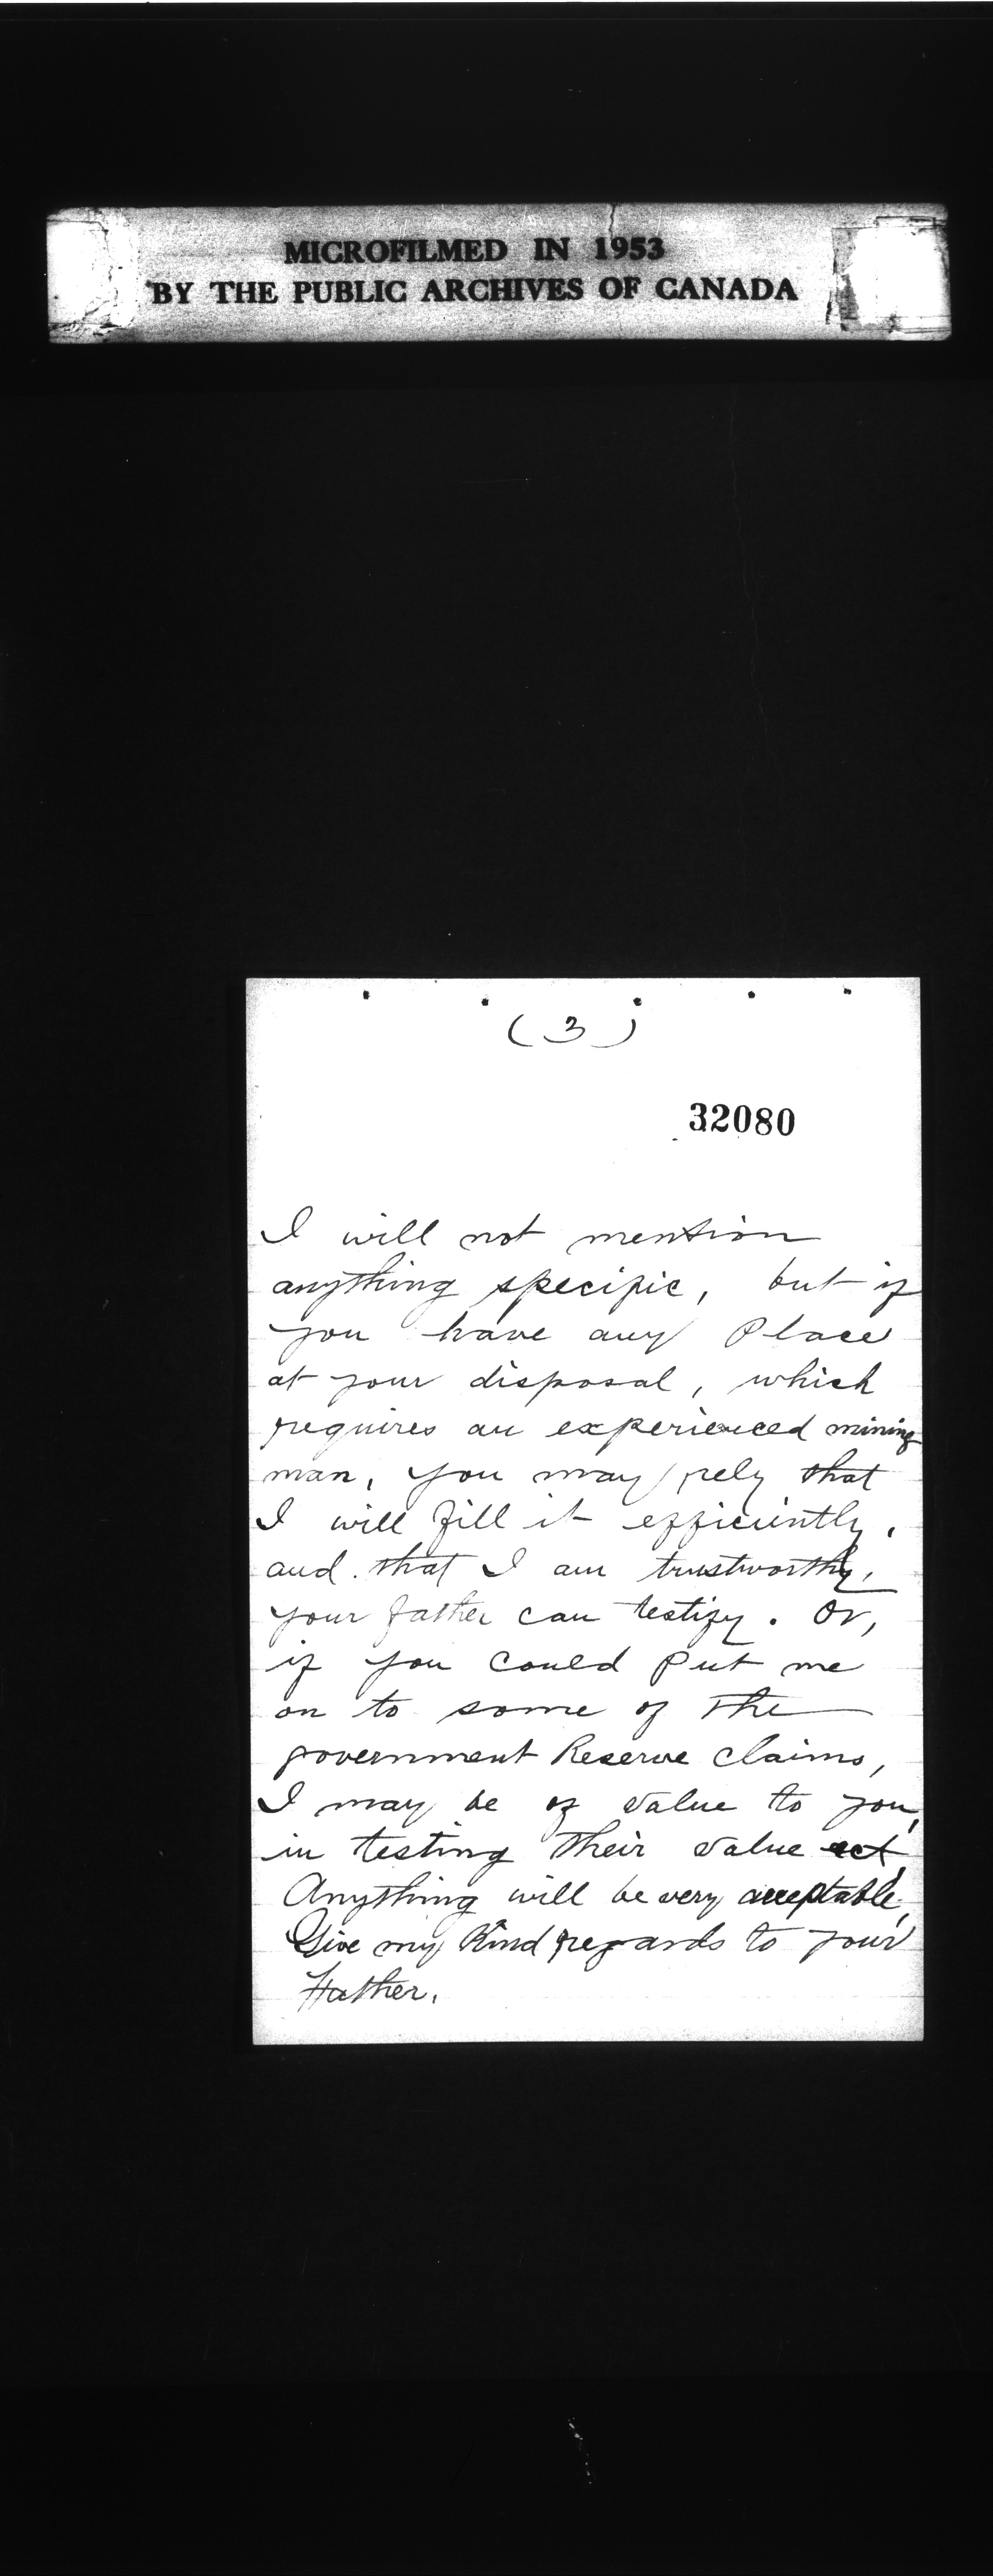 MICROFILMED IN 1953
BY THE PUBLIC ARCHIVES OF CANADA
(3)
32080
I will not mention
anything specific, but if
you have any Place
at your disposal, which
requires an experienced mining
man, you may rely that
I will fill it efficiently,
and that I am trustworthy,
your father can testify. Or,
if you could Put me
on to some of the
government Reserve Claims,
I may be of value to you,
in testing their value ect,
Anything will be very acceptable,
Give my Kind regards to your
Father.